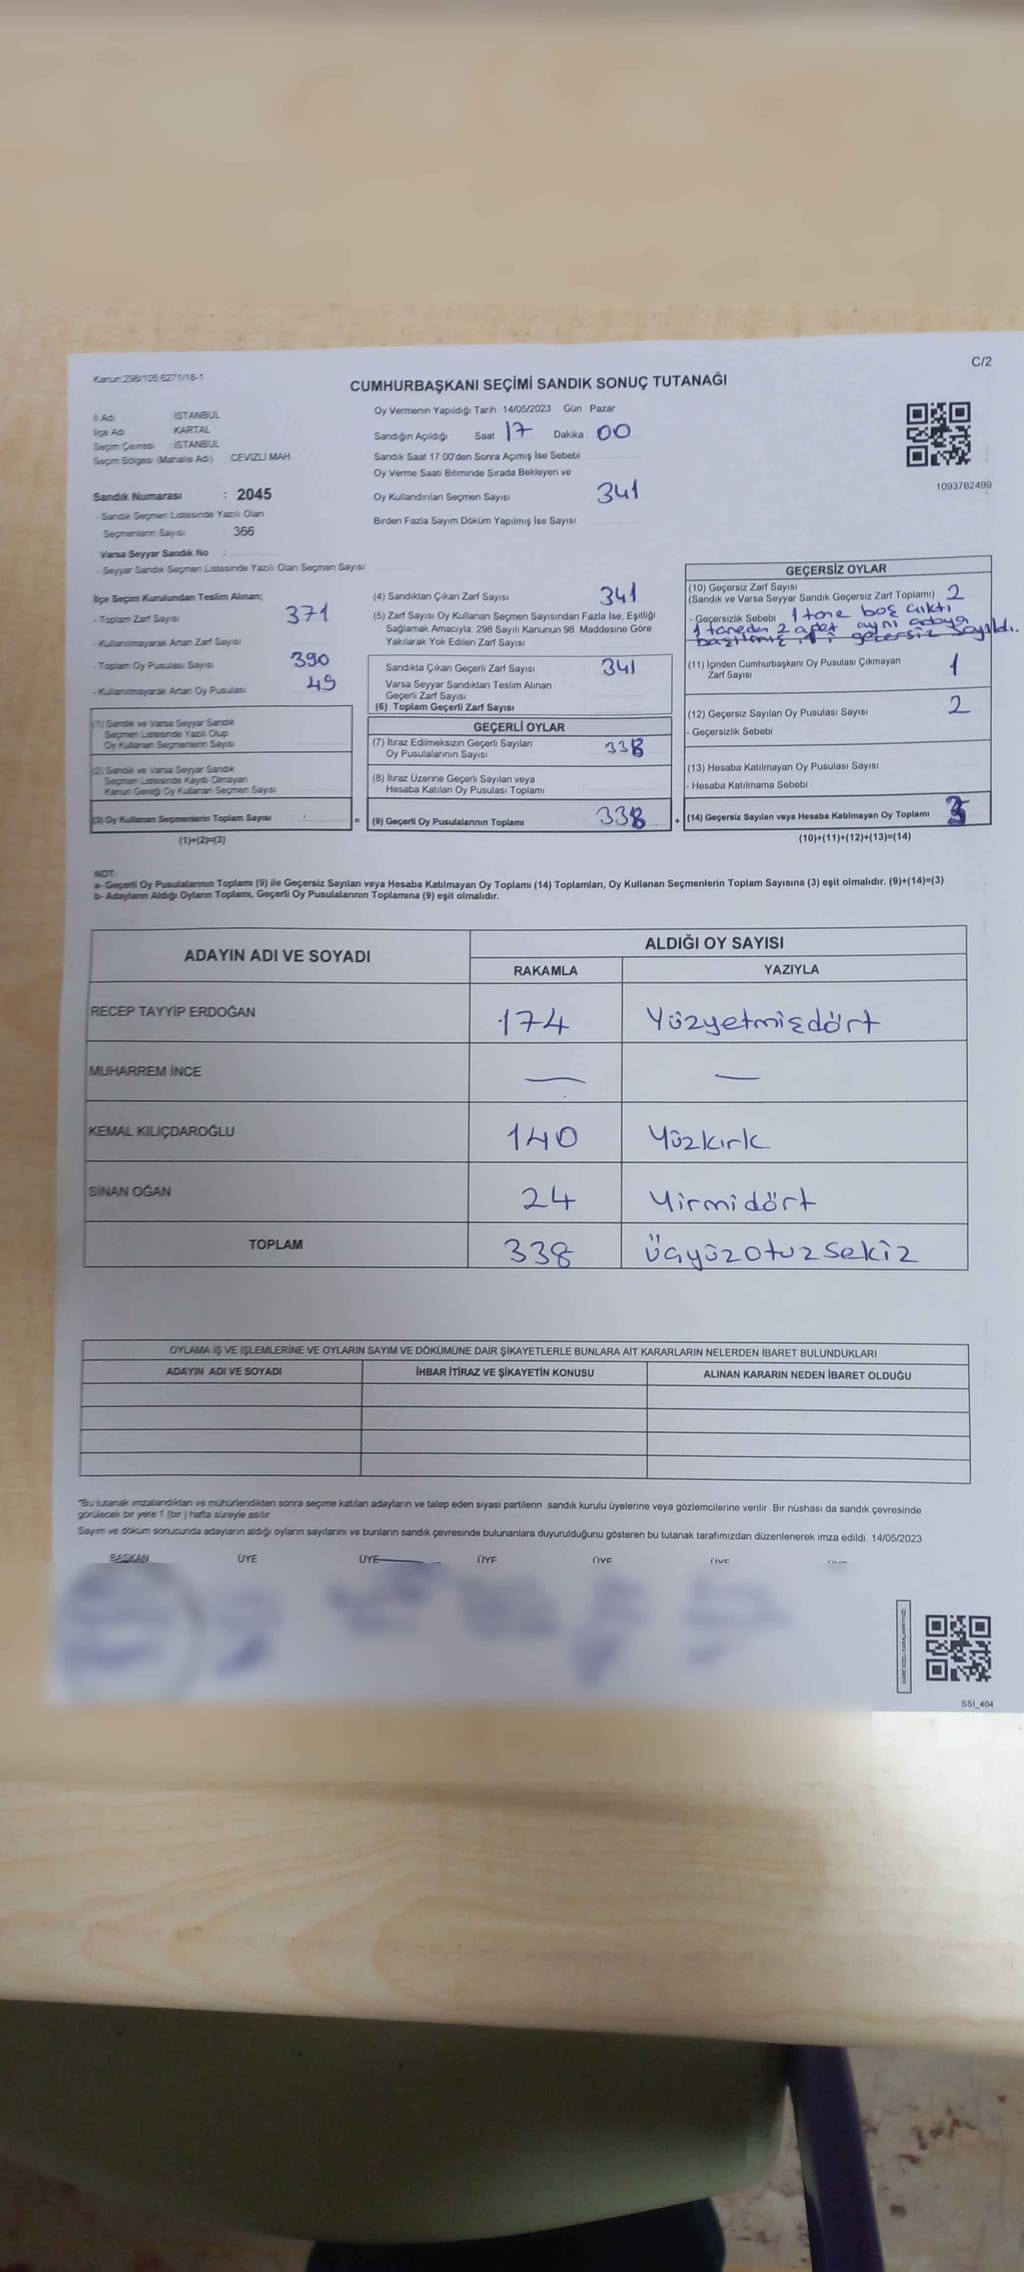 Kanun:298/105,6271/18-1
C/2
CUMHURBAŞKANI SEÇİMİ SANDIK SONUÇ TUTANAĞI
İl Adı İSTANBUL
İlçe Adı KARTAL
Seçim Çevresi : İSTANBUL
Seçim Bölgesi (Mahalle Adı) CEVİZLİ MAH
Sandık Numarası : 2045
- Sandık Seçmen Listesinde Yazılı Olan
Seçmenlerin Sayısı 366
Varsa Seyyar Sandık No :
- Seyyar Sandık Seçmen Listesinde Yazılı Olan Seçmen Sayısı
Oy Vermenin Yapıldığı Tarih 14/05/2023 Gün Pazar
Sandığın Açıldığı Saat 17 Dakika 00
Sandık Saat 17:00'den Sonra Açımış İse Sebebi
Oy Verme Saati Bitiminde Sırada Bekleyen ve
Oy Kullandırılan Seçmen Sayısı 341
Birden Fazla Sayım Döküm Yapılmış İse Sayısı
1093782499
İlçe Seçim Kurulundan Teslim Alınan;
- Toplam Zarf Sayısı 371
- Kullanılmayarak Artan Zarf Sayısı
- Toplam Oy Pusulası Sayısı 390
- Kullanılmayarak Artan Oy Pusulası 49
(1) Sandık ve Varsa Seyyar Sandık
Seçmen Listesinde Yazılı Olup
Oy Kullanan Seçmenlerin Sayısı
(2) Sandık ve Varsa Seyyar Sandık
Seçmen Listesinde Kayıtlı Olmayan
Kanun Gereği Oy Kullanan Seçmen Sayısı
(3) Oy Kullanan Seçmenlerin Toplam Sayısı
(1)+(2)=(3)
(4) Sandıktan Çıkan Zarf Sayısı 341
(5) Zarf Sayısı Oy Kullanan Seçmen Sayısından Fazla İse, Eşitliği
Sağlamak Amacıyla; 298 Sayılı Kanunun 98. Maddesine Göre
Yakılarak Yok Edilen Zarf Sayısı
Sandıkta Çıkan Geçerli Zarf Sayısı 341
Varsa Seyyar Sandıktan Teslim Alınan
Geçerli Zarf Sayısı
(6) Toplam Geçerli Zarf Sayısı
GEÇERLİ OYLAR
(7) İtiraz Edilmeksizin Geçerli Sayılan
Oy Pusulalarının Sayısı 338
(8) İtiraz Üzerine Geçerli Sayılan veya
Hesaba Katılan Oy Pusulası Toplamı
= (9) Geçerli Oy Pusulalarının Toplamı 338 +
GEÇERSİZ OYLAR
(10) Geçersiz Zarf Sayısı
(Sandık ve Varsa Seyyar Sandık Geçersiz Zarf Toplamı) 2
- Geçersizlik Sebebi 1 tane boş çıktı
1 taneden 2 adet aynı adaya
geçersiz sayıldı.
(11) İçinden Cumhurbaşkanı Oy Pusulası Çıkmayan
Zarf Sayısı 1
(12) Geçersiz Sayılan Oy Pusulası Sayısı 2
- Geçersizlik Sebebi
(13) Hesaba Katılmayan Oy Pusulası Sayısı
- Hesaba Katılmama Sebebi
(14) Geçersiz Sayılan veya Hesaba Katılmayan Oy Toplamı 3
(10)+(11)+(12)+(13)=(14)
NOT:
a- Geçerli Oy Pusulalarının Toplamı (9) ile Geçersiz Sayılan veya Hesaba Katılmayan Oy Toplamı (14) Toplamları, Oy Kullanan Seçmenlerin Toplam Sayısına (3) eşit olmalıdır. (9)+(14)=(3)
b- Adayların Aldığı Oyların Toplamı, Geçerli Oy Pusulalarının Toplamına (9) eşit olmalıdır.
ADAYIN ADI VE SOYADI
ALDIĞI OY SAYISI
RAKAMLA YAZIYLA
RECEP TAYYİP ERDOĞAN 174 Yüzyetmişdört
MUHARREM İNCE — —
KEMAL KILIÇDAROĞLU 140 Yüzkırk
SİNAN OĞAN 24 Yirmidört
TOPLAM 338 Üçyüzotuzsekiz
OYLAMA İŞ VE İŞLEMLERİNE VE OYLARIN SAYIM VE DÖKÜMÜNE DAİR ŞİKAYETLERLE BUNLARA AİT KARARLARIN NELERDEN İBARET BULUNDUKLARI
ADAYIN ADI VE SOYADI İHBAR İTİRAZ VE ŞİKAYETİN KONUSU ALINAN KARARIN NEDEN İBARET OLDUĞU
*Bu tutanak imzalandıktan ve mühürlendikten sonra seçime katılan adayların ve talep eden siyasi partilerin sandık kurulu üyelerine veya gözlemcilerine verilir. Bir nüshası da sandık çevresinde
görülecek bir yere 1 (bir ) hafta süreyle asılır
Sayım ve döküm sonucunda adayların aldığı oyların sayılarını ve bunların sandık çevresinde bulunanlara duyurulduğunu gösteren bu tutanak tarafımızdan düzenlenerek imza edildi. 14/05/2023
BAŞKAN ÜYE ÜYE ÜYE ÜYE ÜYE
SSI_404